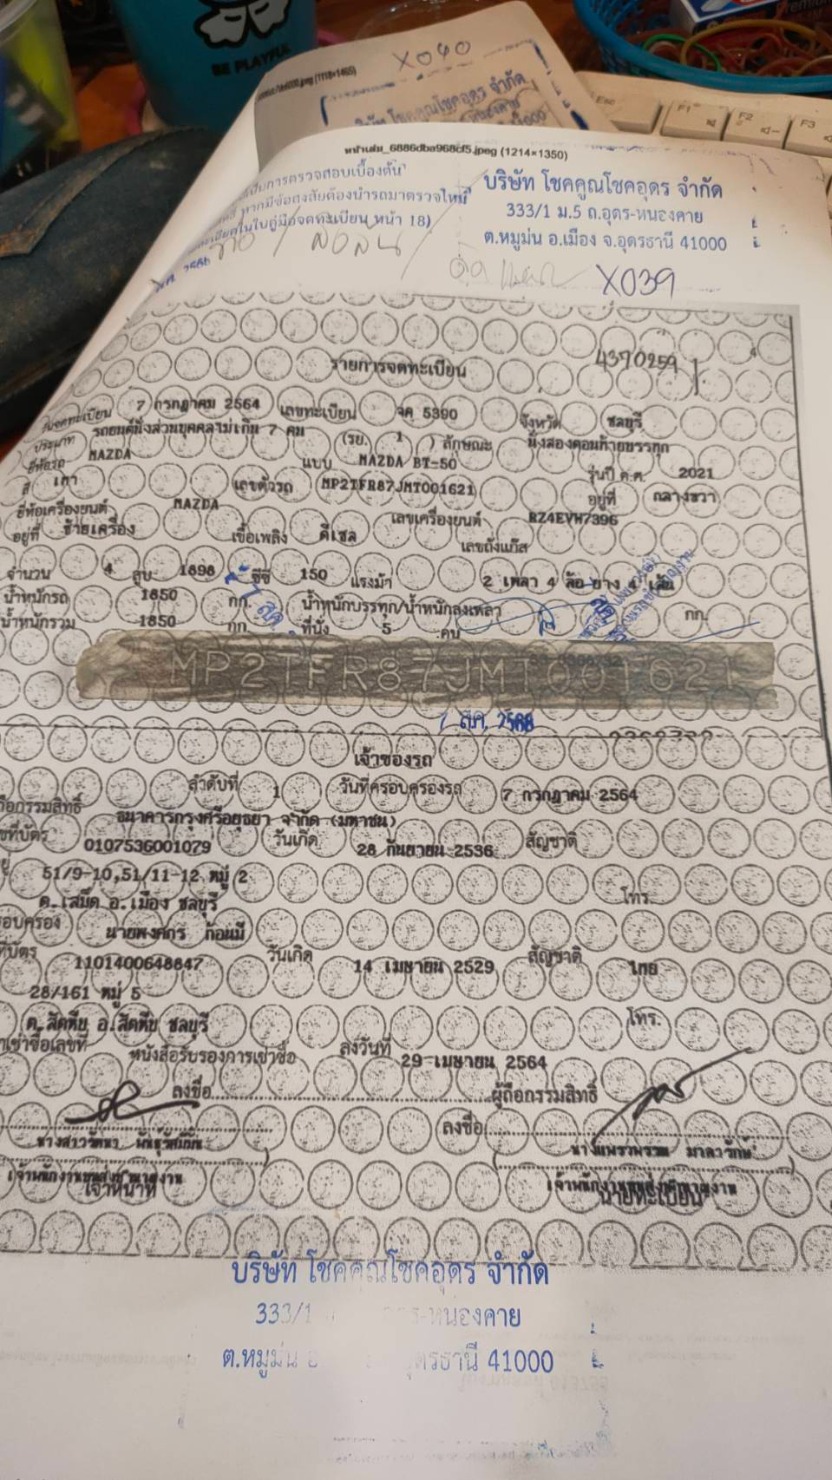 BE PLAYFUL
X040
(1118×1465)
บริษัท โชคคูณโชคอุดร จำกัด
41000
Esc
F1
F2
F3
หน้าเล่ม_6886dba968cf5.jpeg (1214×1350)
การตรวจสอบเบื้องต้น
หากมีข้อสงสัยต้องนำรถมาตรวจใหม่
ในใบคู่มือจดทะเบียน หน้า 18)
บริษัท โชคคูณโชคอุดร จำกัด
333/1 ม.5 ถ.อุดร-หนองคาย
ต.หมูม่น อ.เมือง จ.อุดรธานี 41000
X039
รายการจดทะเบียน
4370259
วันจดทะเบียน 7 กรกฎาคม 2564 เลขทะเบียน จค 5390 จังหวัด ชลบุรี
ประเภท รถยนต์นั่งส่วนบุคคลไม่เกิน 7 คน (รย. 1 ) ลักษณะ นั่งสองตอนท้ายบรรทุก
ยี่ห้อรถ MAZDA แบบ MAZDA BT-50 รุ่นปี ค.ศ. 2021
สี เทา เลขตัวรถ MP2TFR87JMT001621 อยู่ที่ กลางขวา
ยี่ห้อเครื่องยนต์ MAZDA เลขเครื่องยนต์ RZ4EVW7396
อยู่ที่ ซ้ายเครื่อง เชื้อเพลิง ดีเซล เลขถังแก๊ส
จำนวน 4 สูบ 1898 ซีซี 150 แรงม้า 2 เพลา 4 ล้อ ยาง 4 เส้น
น้ำหนักรถ 1850 กก. น้ำหนักบรรทุก/น้ำหนักลงเพลา กก.
น้ำหนักรวม 1850 กก. ที่นั่ง 5 คน
MP2TFR87JMT001621
ส.ค. 2568
เจ้าของรถ
ลำดับที่ 1 วันที่ครอบครองรถ 7 กรกฎาคม 2564
ถือกรรมสิทธิ์ ธนาคารกรุงศรีอยุธยา จำกัด (มหาชน)
ที่บัตร 0107536001079 วันเกิด 28 กันยายน 2536 สัญชาติ
51/9-10,51/11-12 หมู่ 2 โทร.
ต.เสม็ด อ.เมือง ชลบุรี
อบครอง นายพงศกร ก้อนมี
ที่บัตร 1101400648647 วันเกิด 14 เมษายน 2529 สัญชาติ ไทย
28/161 หมู่ 5
ต.สัตหีบ อ.สัตหีบ ชลบุรี โทร.
าเช่าซื้อเลขที่ หนังสือรับรองการเช่าซื้อ ลงวันที่ 29 เมษายน 2564
ลงชื่อ ผู้ถือกรรมสิทธิ์
ลงชื่อ
เจ้าพนักงานขนส่งชำนาญงาน
เจ้าหน้าที่
เจ้าพนักงานขนส่งชำนาญงาน
นายทะเบียน
บริษัท โชคคูณโชคอุดร จำกัด
333/1 ร-หนองคาย
ต.หมูม่น อ ุดรธานี 41000